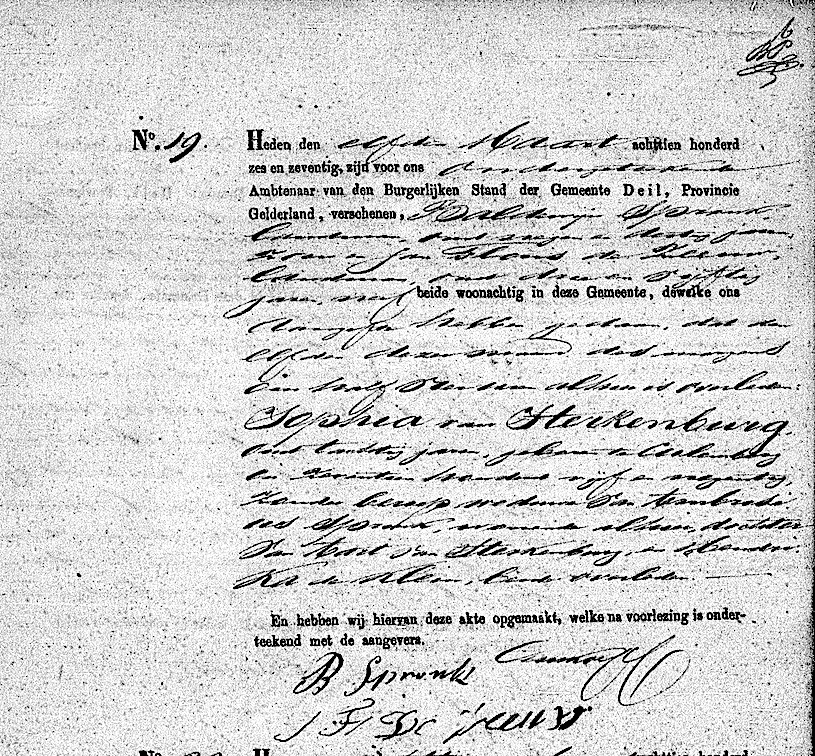 N°. 19. Heden den elfden Maart achttien honderd
zes en zeventig, zijn voor ons Ondergeteekende
Ambtenaar van den Burgerlijken Stand der Gemeente Deil, Provincie
Gelderland, verschenen, Spronk
oud negen en dertig jaren,
en Jan Floris de Leeuw
oud drie en vijftig
jaren, beide woonachtig in deze Gemeente, dewelke ons
aangifte hebben gedaan, dat den
elfden dezer maand des morgens
een half alhier is overleden:
Sophia van Sterkenburg,
oud tachtig jaren, geboren te Culenborg
in Zeventien honderd vijf en negentig,
zonder beroep weduwe van Ambrosi
us Spronk, wonende alhier, dochter
van Aart van Sterkenburg, en Hendri
ka de Klein, beide overleden.
En hebben wij hiervan deze akte opgemaakt, welke na voorlezing is onder-
teekend met de aangevers.
B Spronk
J F De Leeuw